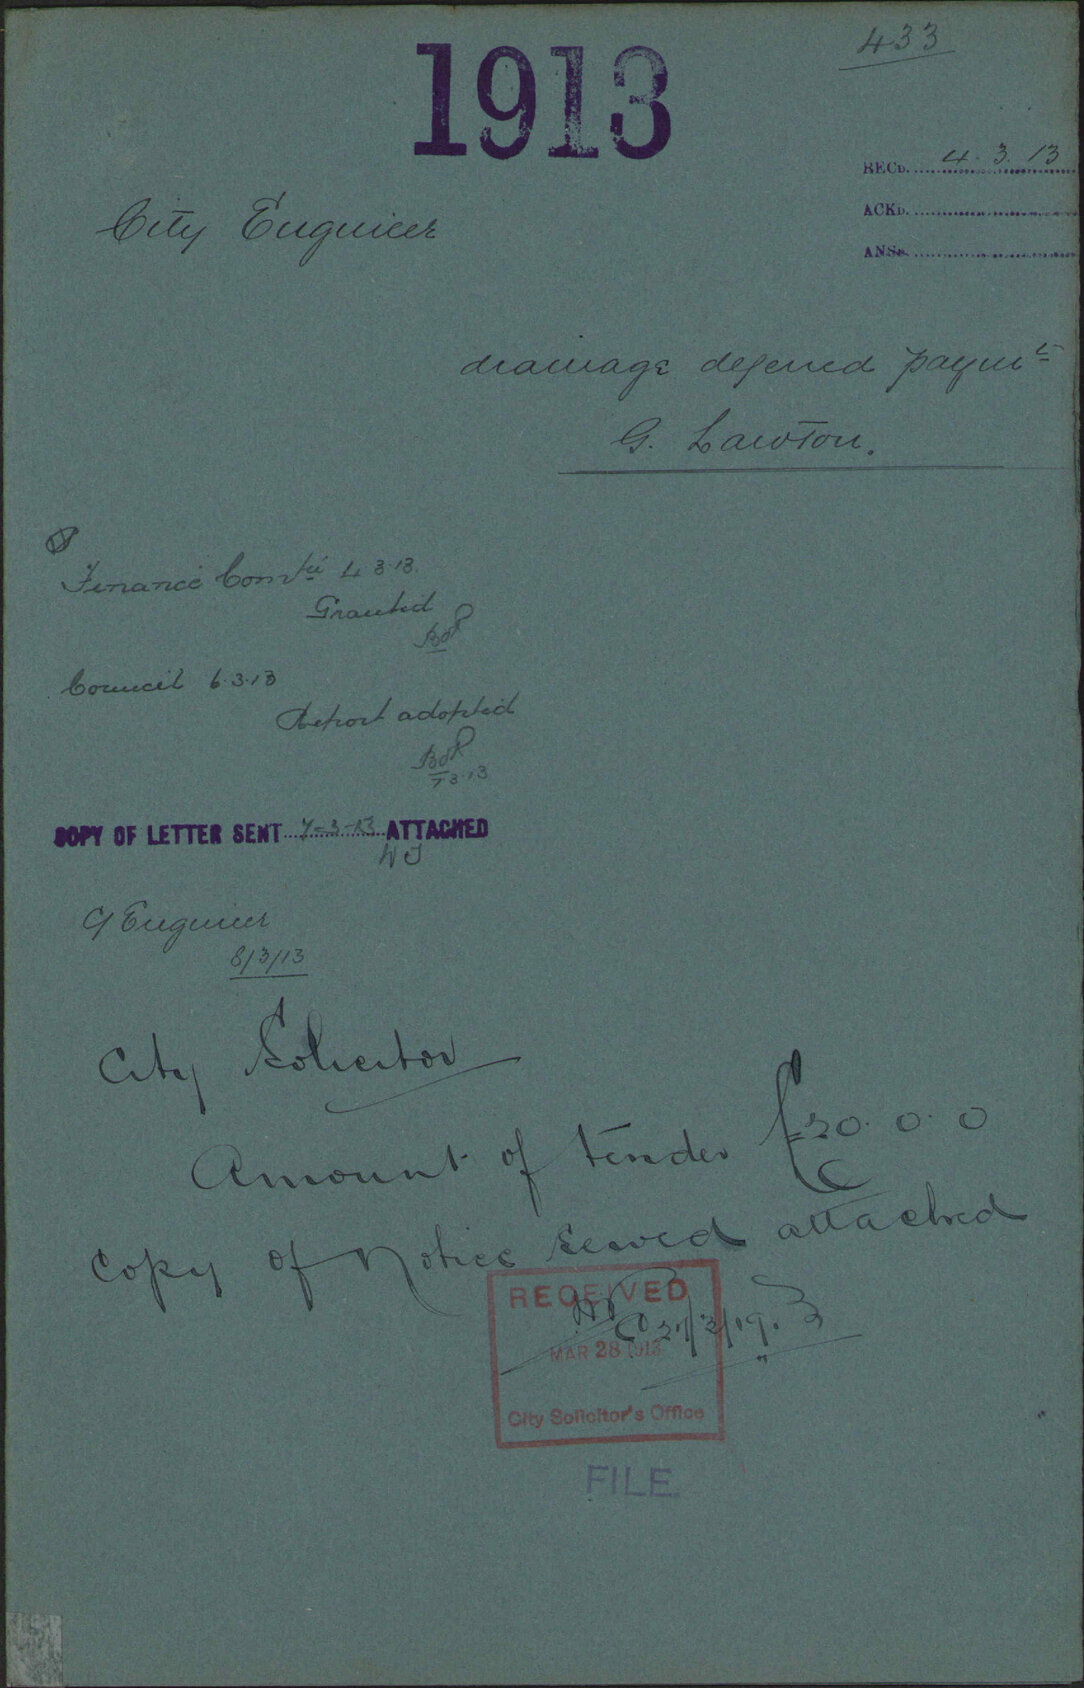 433
1913
RECD. 4.3.13
ACKD.
ANSD.
City Engineer
drainage deferred paymts
G. Lawton.
Finance Comtee 4.3.13.
Granted
Council 6.3.13
Report adopted
7.3.13
COPY OF LETTER SENT 7-3-13 ATTACHED
C/ Engineer
8/3/13
City Solicitor
Amount of tender £20.0.0
Copy of Notice served attached
RECEIVED
MAR 28 1913
City Solicitor's Office
FILE